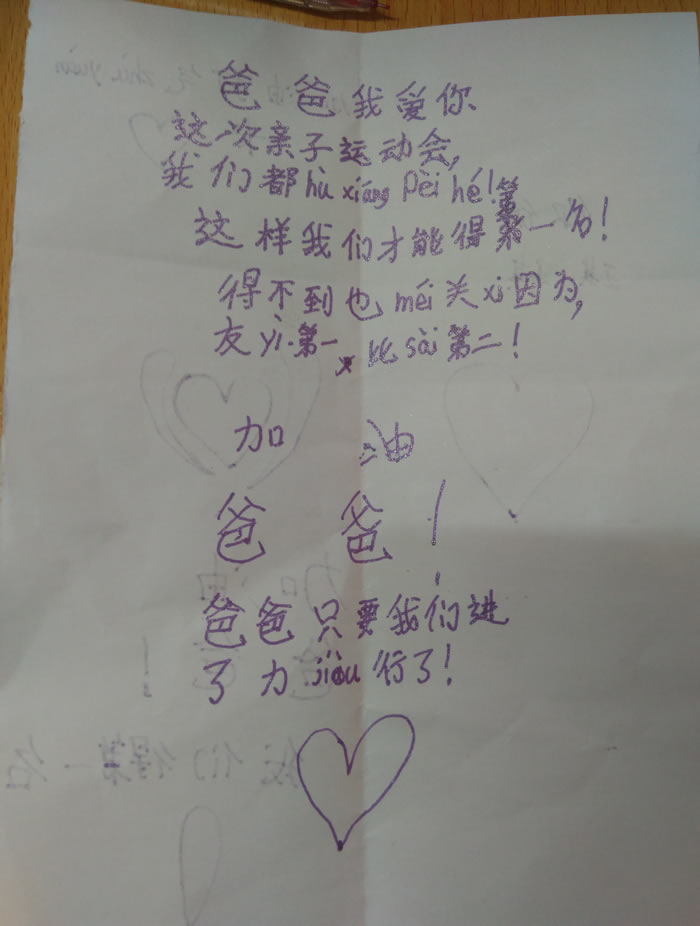 爸爸我爱你
这次亲子运动会,
我们都hù xiāng Pèi hé!
这样我们才能得第一名!
得不到也méi关xi因为,
友yì.第一 比sài第二!
加油
爸爸!
爸爸只要我们进
了力jiòu行了!